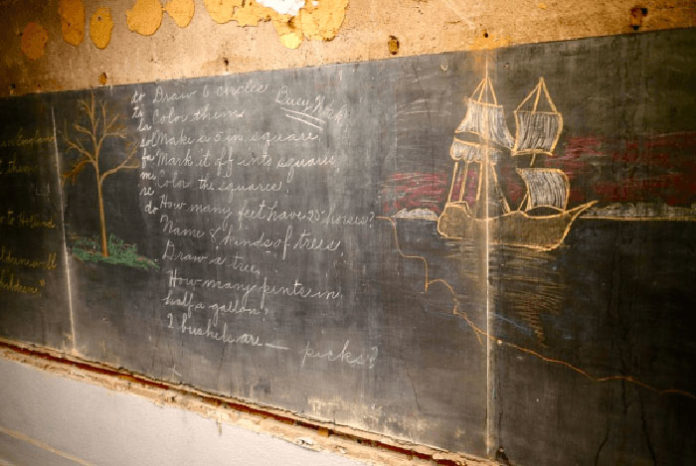 to Holland
do Draw 6 circles Busy Work
ti Color them.
la
sol Make a 5 in square.
fa Mark it off into squares
mi Color the squares.
re
do How many feet have 25 horses?
Name 8 kinds of trees.
Draw a tree,
How many pints in
half a gallon,
2 bushels are — pecks?